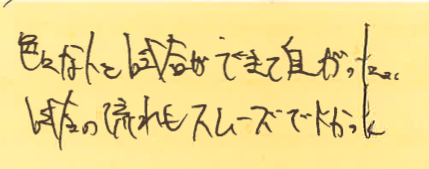 色々な人と試合ができて良かった。
試合の流れもスムーズでよかった